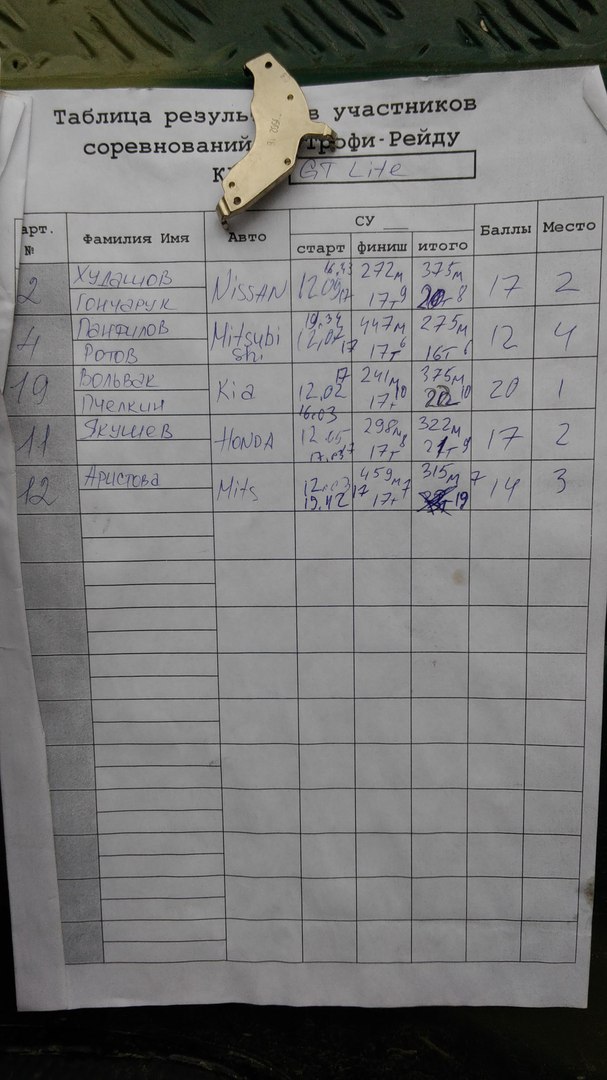 Таблица в участников
соревнований Трофи-Рейду
GT Lite
арт. № Фамилия Имя Авто СУ Баллы Место
старт финиш итого
2 Худашов Гончарук NISSAN 16.43 12.09 17 272м 17т 9 375м 20т 8 17 2
4 Панфилов Ротов Mitsubi shi 19.34 12.07 17 447м 17т 6 275м 16т 6 12 4
19 Вольвак Пчелкин Kia 17 12.02 241м 17т 10 375м 10 20 1
11 Якушев HONDA 16.03 12.05 17 298м 17т 8 322м 21т 9 17 2
12 Аристова Mits 12.03 17 19.42 459м 17т 7 315м 7 19 14 3